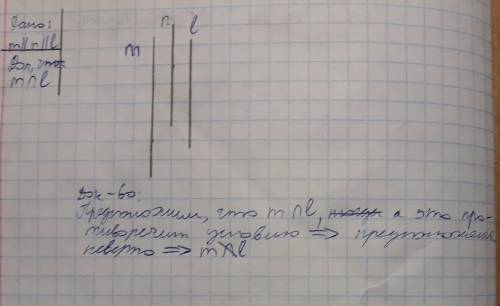 Дано:
m||n||l
Док, что
m∩l
m n l
Док-во:
Предположим, что m∩l, а это про-
тиворечит условию ⇒ предположение
неверно ⇒ m∩̸l